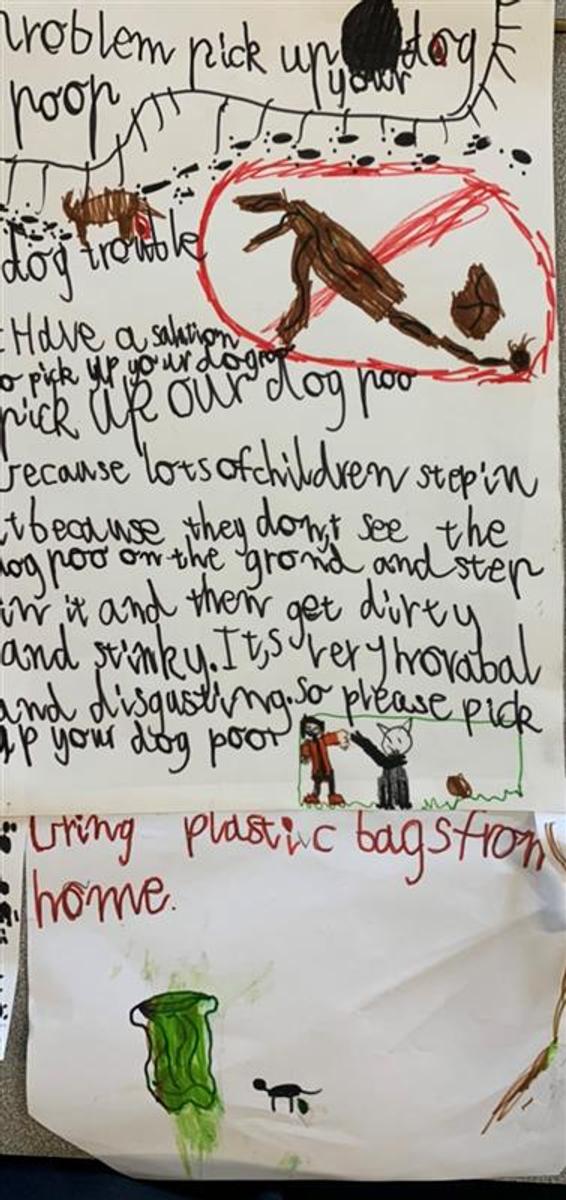 roblem pick up dog
your
poop
dog trouble
Have a salution
o pick up your dog poop
pick up our dog poo
ecause lots of children step in
it because they don,t see the
dog poo on the grond and step
in it and then get dirty
and stinky. It,s very horrabal
and disgusting. So please pick
up your dog poo
bring plastic bags from
home.